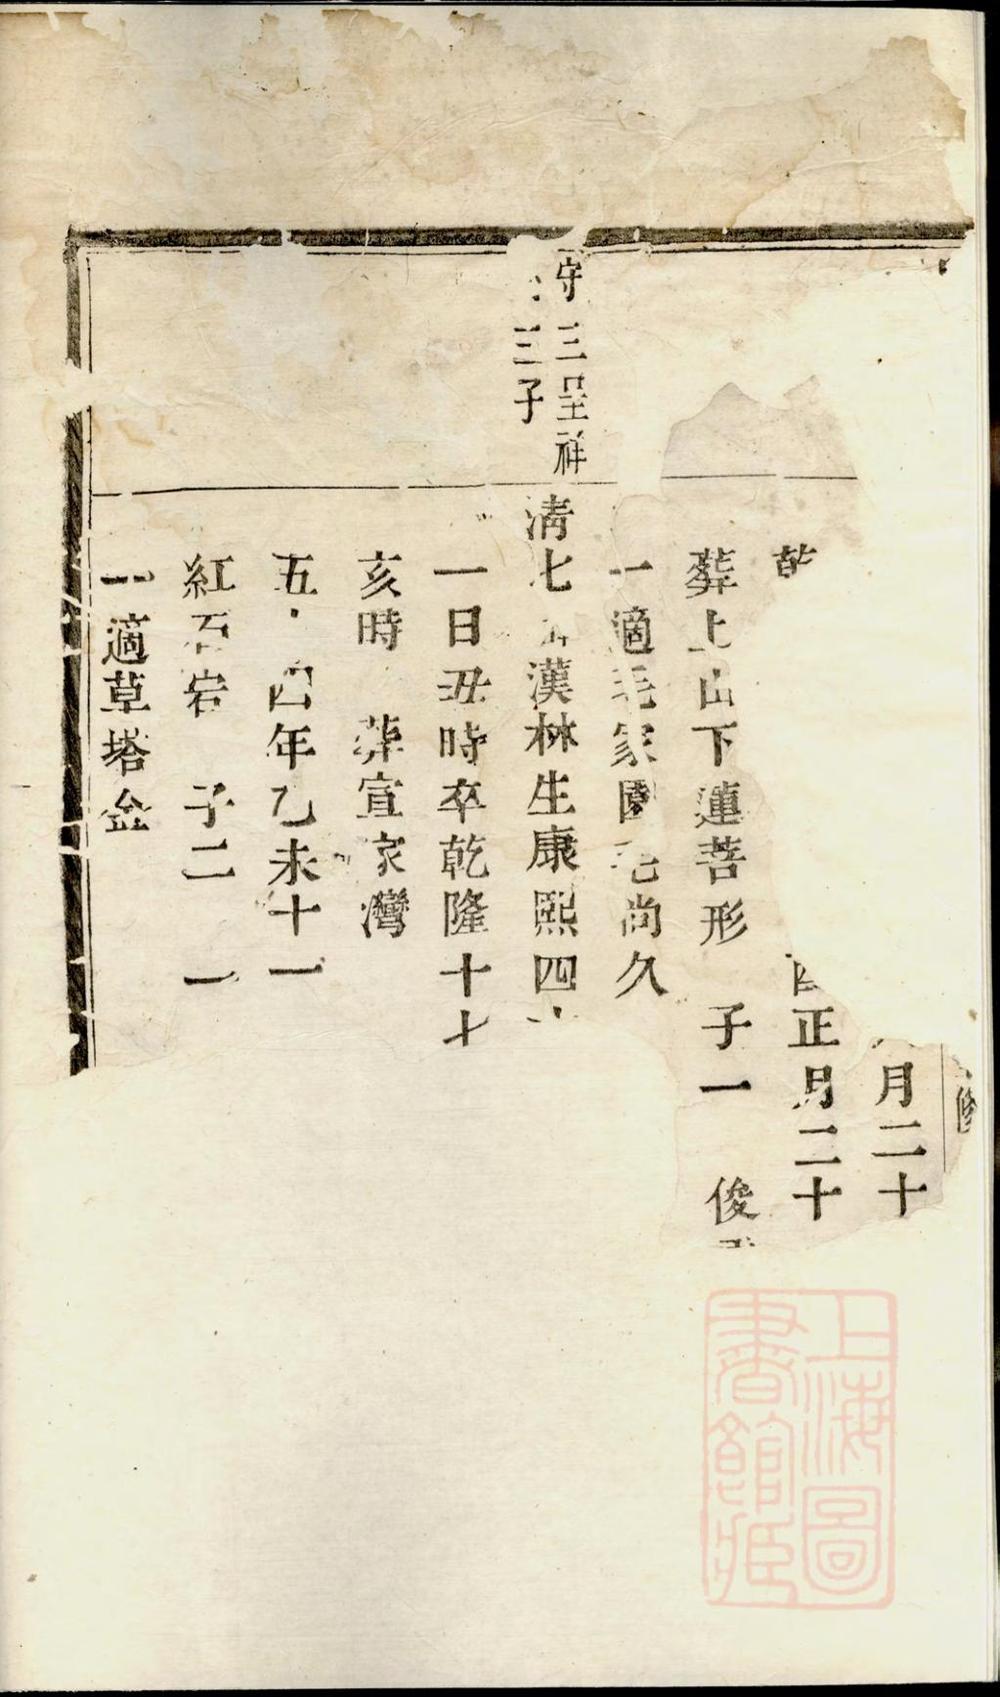 修
月二十
乾 酉正月二十
葬上山下蓮菩形 子一 俊
一適毛家園毛尚久
守三呈祥
三子
清七 漢林生康熙四十
一日丑時卒乾隆十七
亥時 葬宣家灣
五 四年乙未十一
紅石宕 子二 一
一適草塔金
上海圖
書館藏